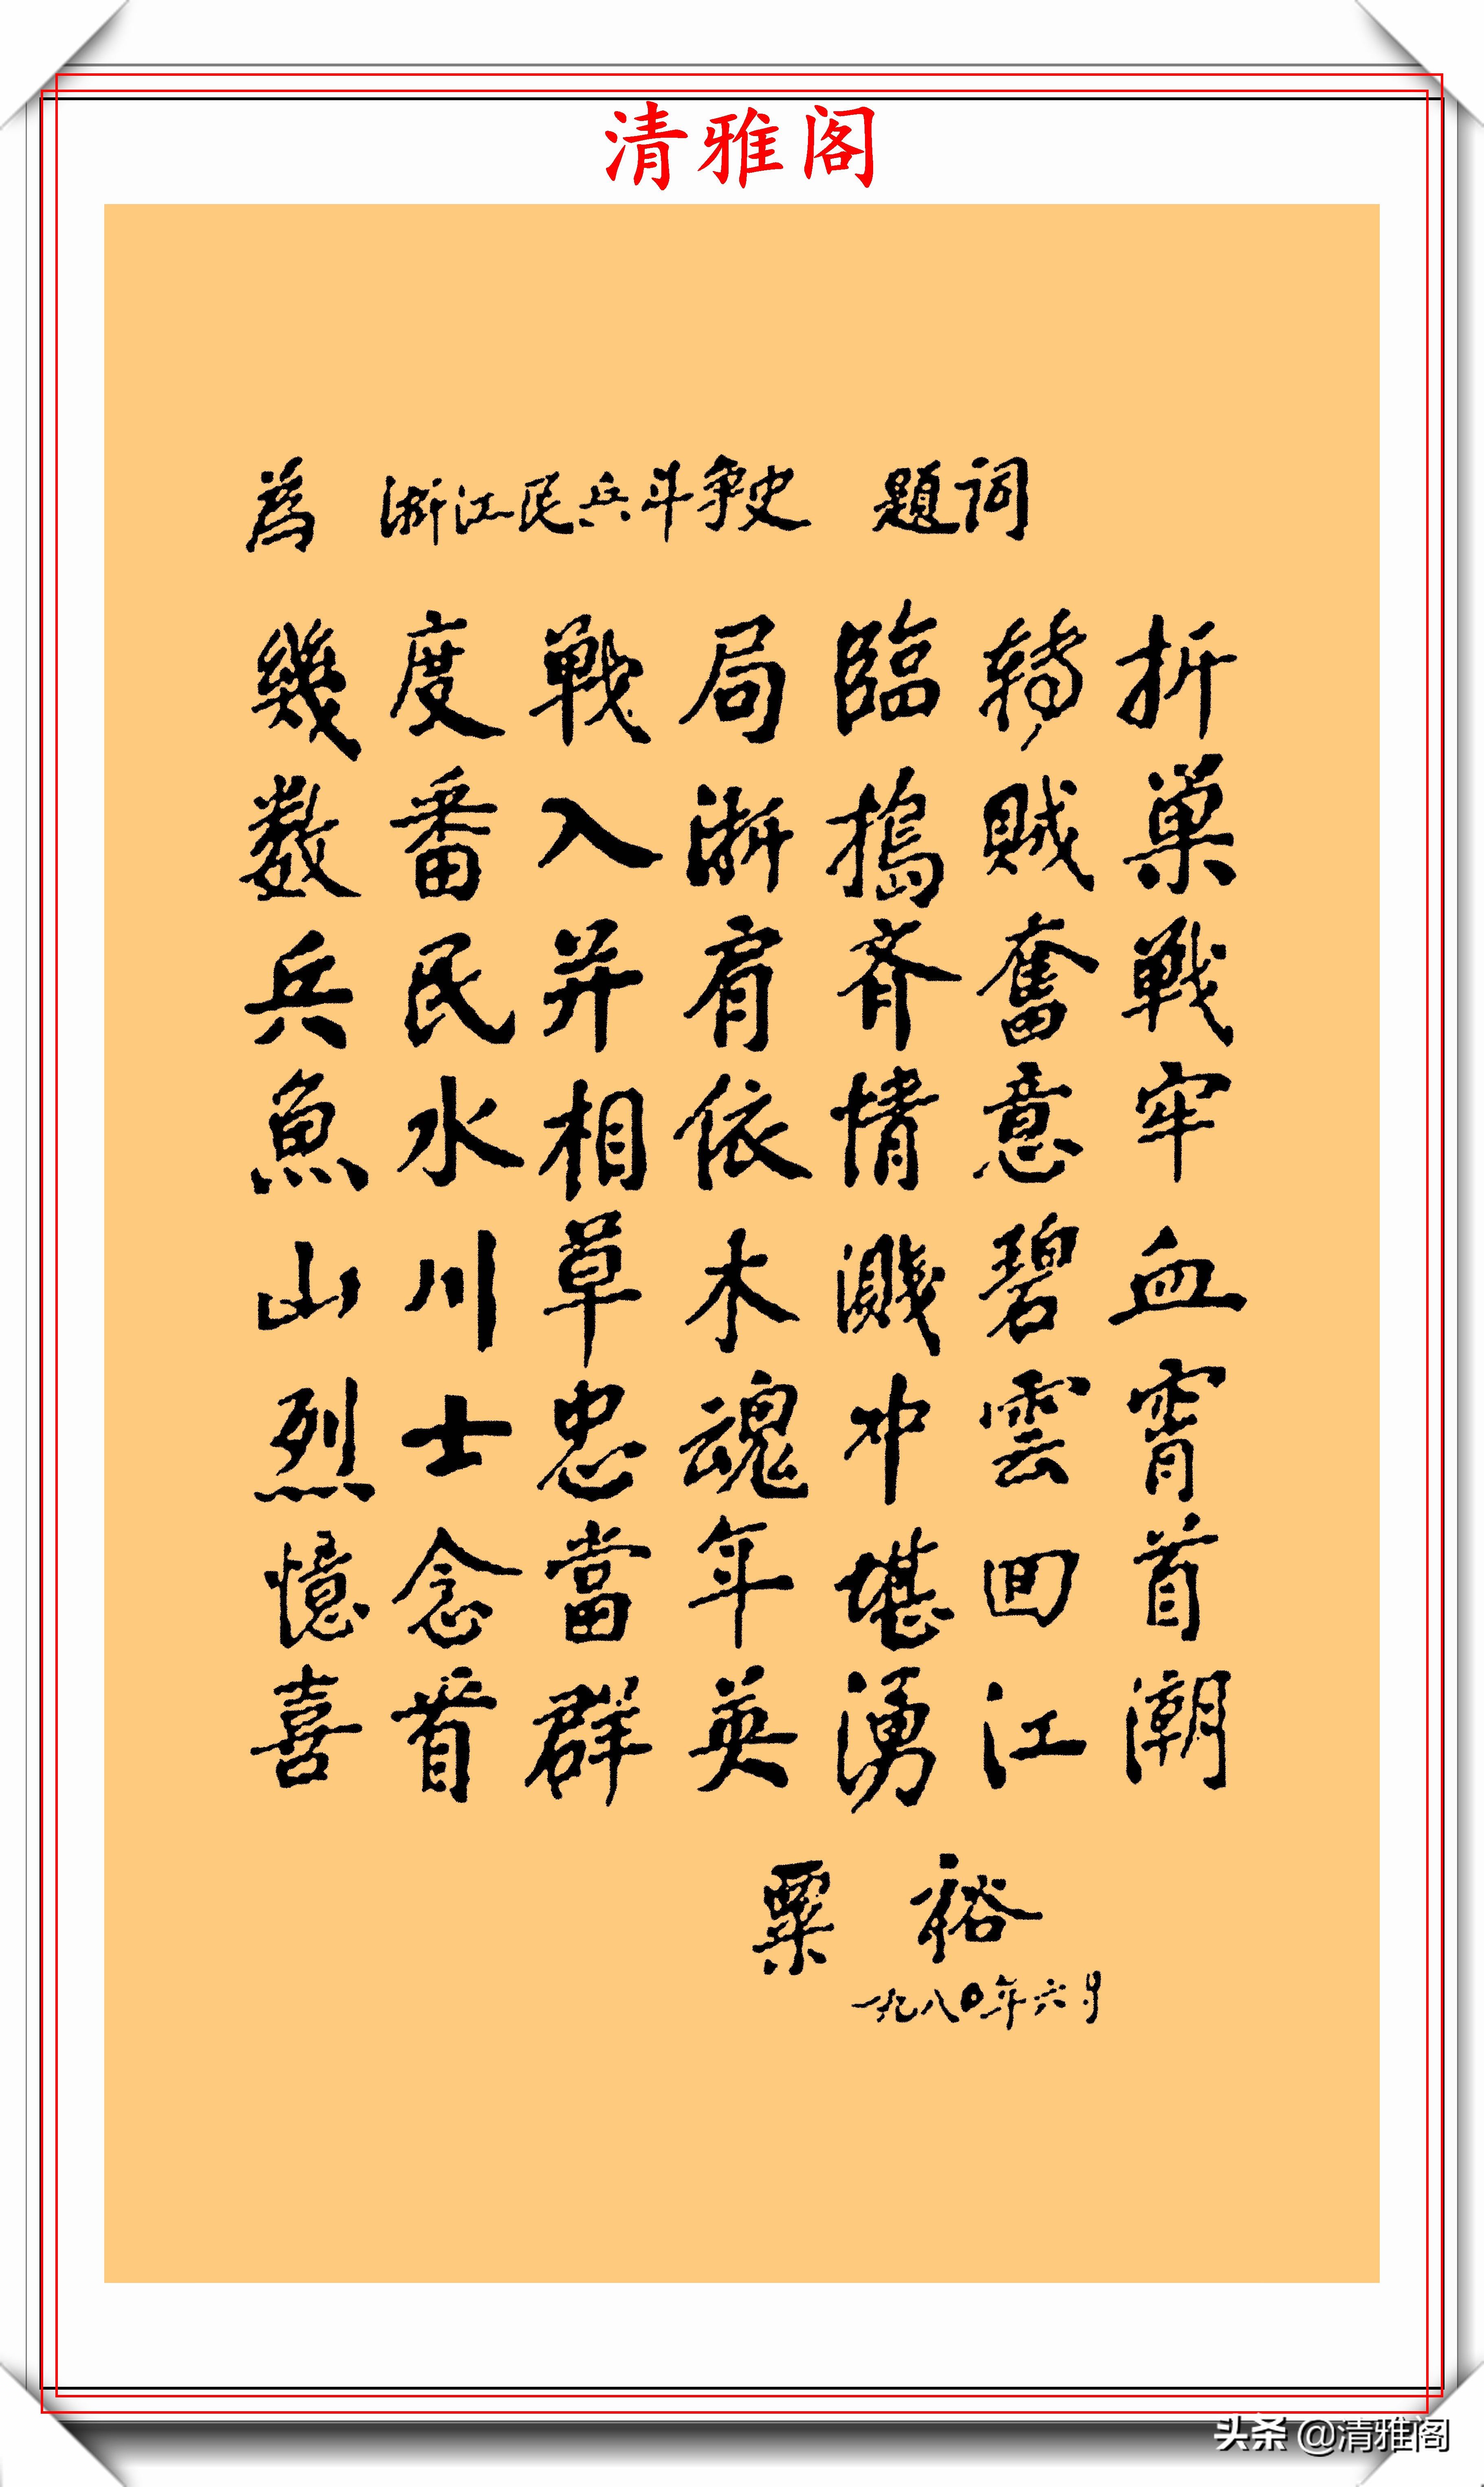 清雅阁
為 浙江民兵斗争史 題词
幾度戰局臨转折
数番入浙搗賊巢
兵民并肩齐奮戰
魚水相依情意牢
山川草木溅碧血
烈士忠魂冲雲霄
憶念當年堪回首
喜看群英湧江潮
粟裕
一九八〇年六月
头条 @清雅阁